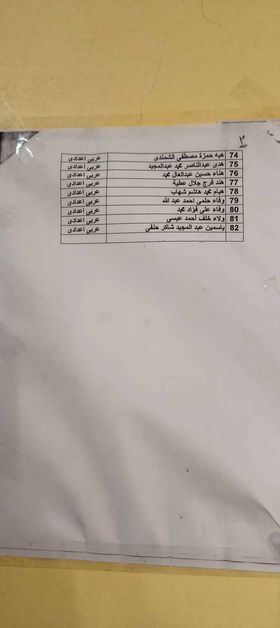 ٣
74 هبه حمزة مصطفى الشمندى عربى اعدادى
75 هدى عبدالناصر محمد عبدالمجيد عربى اعدادى
76 هناء حسين عبدالعال محمد عربى اعدادى
77 هند فرج جلال عطية عربى اعدادى
78 هيام محمد هاشم شهاب عربى اعدادى
79 وفاء حلمى احمد عبد الله عربى اعدادى
80 وفاء على فؤاد محمد عربى اعدادى
81 ولاء خلف احمد عيسى عربى اعدادى
82 ياسمين عبد المجيد شاكر حنفى عربى اعدادى